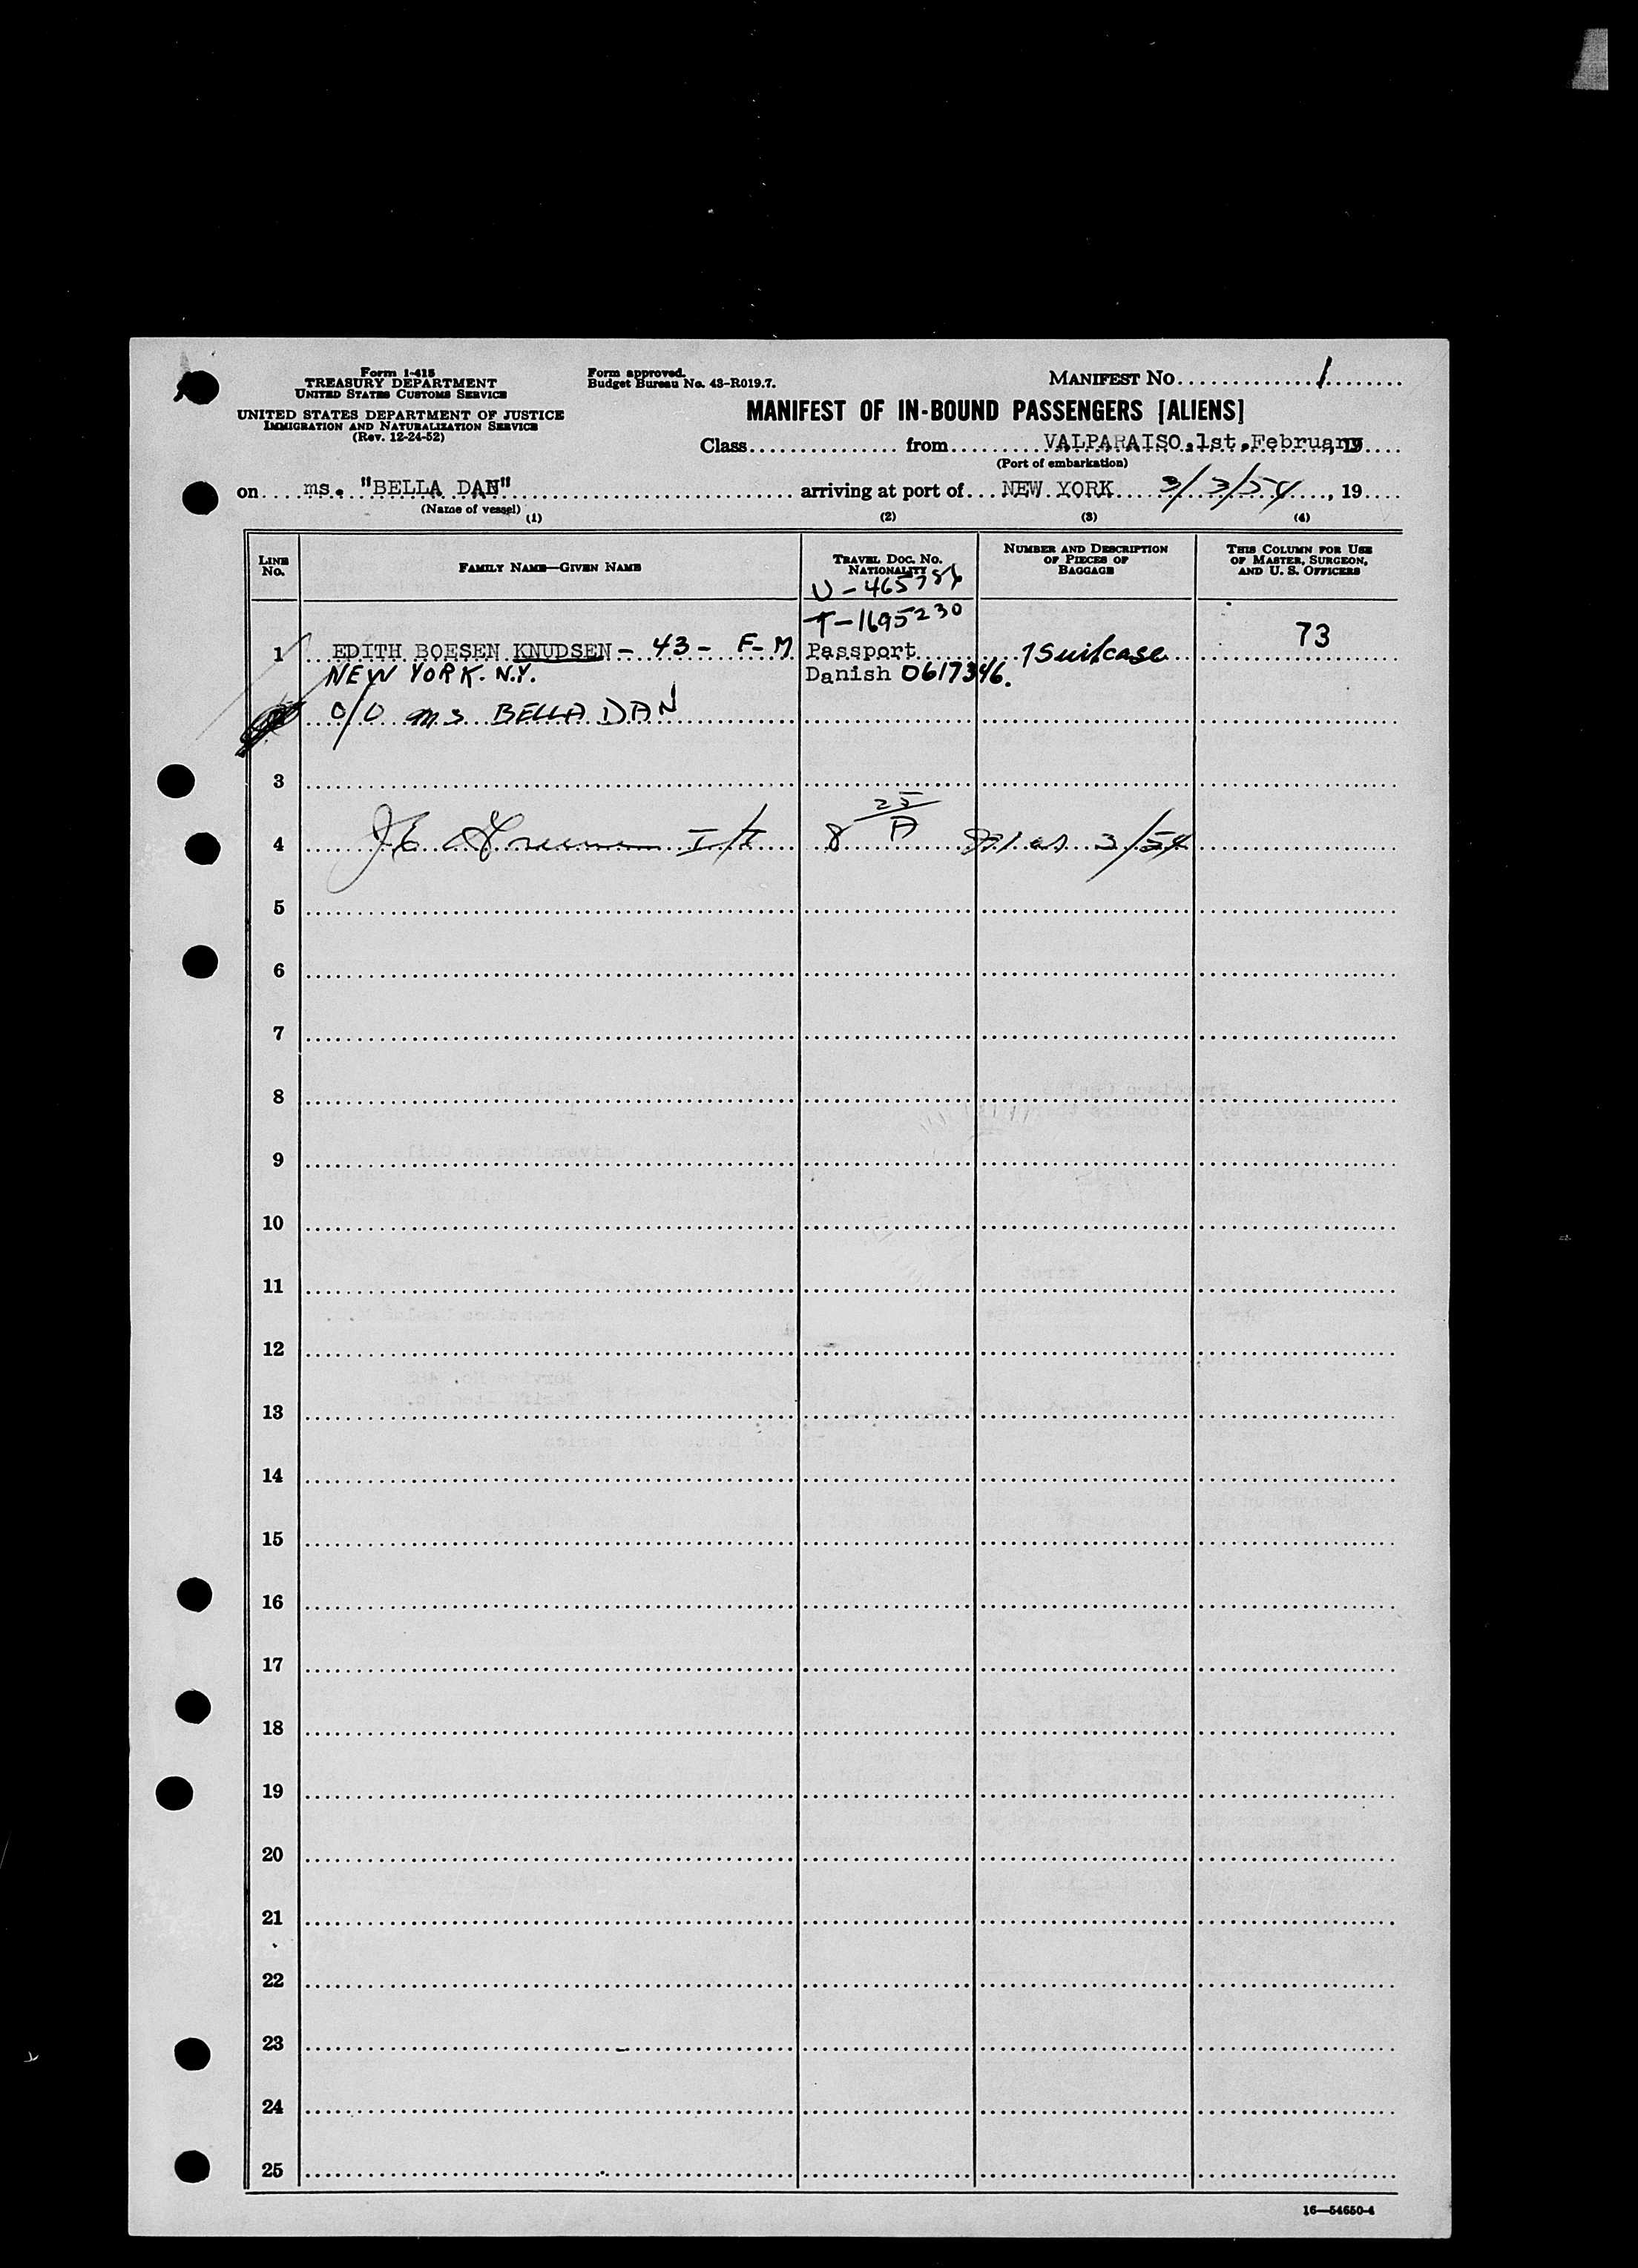 Form I-418
TREASURY DEPARTMENT
UNITED STATES CUSTOMS SERVICE
UNITED STATES DEPARTMENT OF JUSTICE
IMMIGRATION AND NATURALIZATION SERVICE
(Rev. 12-24-52)
Form approved.
Budget Bureau No. 43-R019.7.
MANIFEST NO. 1
MANIFEST OF IN-BOUND PASSENGERS [ALIENS]
Class from VALPARAISO, 1st, February, 19
(Port of embarkation)
on ms. "BELLA DAN" arriving at port of NEW YORK 3/3/54, 19
(Name of vessel)
(1) (2) (3) (4)
LINE NO.
FAMILY NAME—GIVEN NAME
TRAVEL DOC. NO.
NATIONALITY
NUMBER AND DESCRIPTION
OF PIECES OF
BAGGAGE
THIS COLUMN FOR USE
OF MASTER, SURGEON,
AND U. S. OFFICERS
U-465786
T-1695230
73
1 EDITH BOESEN KNUDSEN - 43 - F-M Passport 1 Suitcase
NEW YORK. N.Y. Danish 0617346.
O/O ms BELLA DAN
3
4 I/I 8 25/A 3/54
5
6
7
8
9
10
11
12
13
14
15
16
17
18
19
20
21
22
23
24
25
16—54650-4